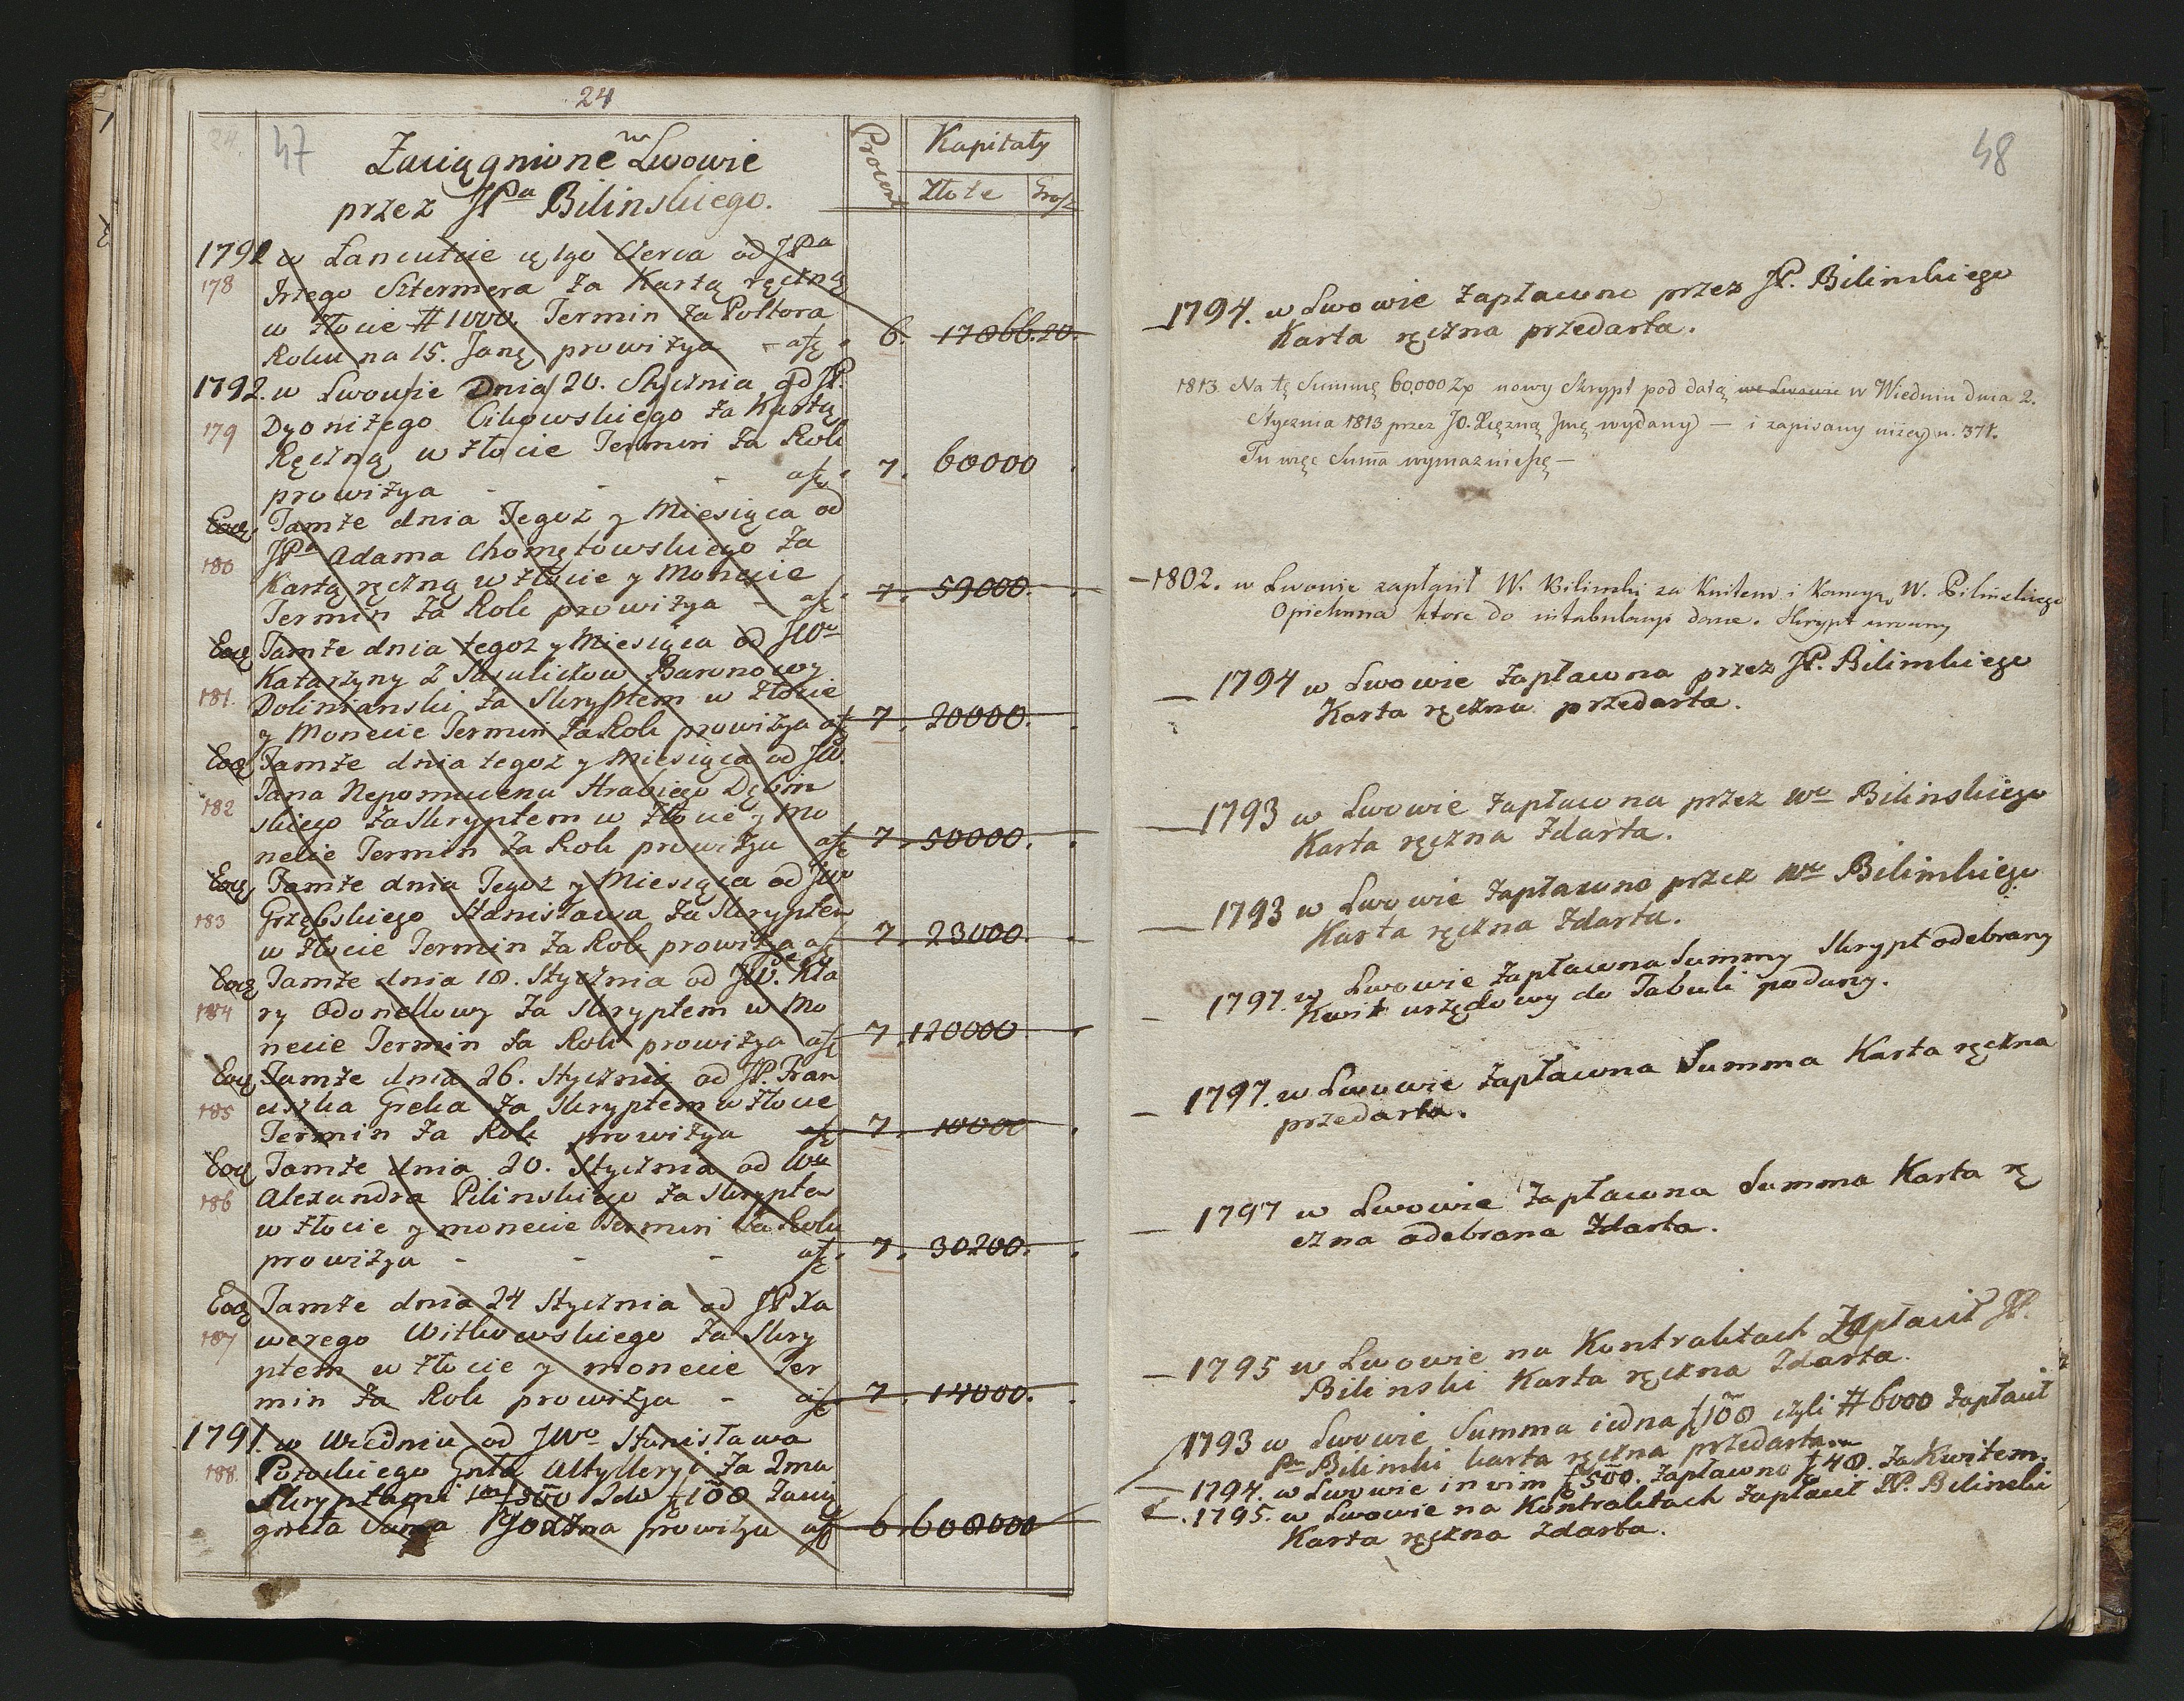 24
24.
47
Zaciągnione w Lwowie
przez JPa Bilinskiego.
Procent
Kapitały
Złote
Grosz
1791 w Lancutcie 1go Czerca od JPa
178
Sztermera Za Kartą ręczną
w złocie # 1000. Termin Za Poltora
Roku na 15. Janę prowizya - afę
6.
17866.20.
1792. w Lwowie Dnia 20. Stycznia od JP.
Dyonizego Cikowskiego Za Kartą
179
Ręczną w złocie Termin Za Rok
prowizya - - - afę
7.
60000
Eod. Tamże dnia Tegoż y Miesiąca od
JPa Adama Chomętowskiego Za
180
Kartą ręczną w złocie y Monecie
Termin Za Rok prowizya - afę
7.
59000.
Eod Tamże dnia tegoż y Miesiąca od JWo
Katarzyny z Baronowy
181.
Dolinianski Za Skryptem w złocie
y Monecie Termin Za Rok prowizya afę
7.
20000.
Eod Tamże dnia tegoż y Miesiąca od JW.
Jana Nepomucena Hrabiego Dębin
182
skiego Za Skryptem w złocie y Mo
necie Termin Za Rok prowizya afę
7.
50000.
Eod Tamże dnia Tegoż y Miesiąca od JWo
183
Grzębskiego Stanisława Za Skryptem
w złocie Termin Za Rok prowizya afę
7.
23000.
Eod Tamże dnia 18. Stycznia od JW. Kla
184
ry Odonellowy Za Skryptem w Mo
necie Termin Za Rok prowizya afę
7.
120000
Eod Tamże dnia 26. Stycznia od JP. Fran
185
ciszka Greka Za Skryptem w złocie
Termin Za Rok prowizya afę
7.
10000
Eod Tamże dnia 20. Stycznia od Wo
186
Alexandra Pilinskiego Za Skryptem
w złocie y monecie Termin Za Rok
prowizya - - afę
7.
30200.
Eod Tamże dnia 24 Stycznia od JP Xa
187
werego Witkowskiego Za Skry
ptem w złocie y monecie Ter
min Za Rok prowizya - afę
7.
14000.
1791. w Wiedniu od JWo Stanisława
188.
Potockiego Gnła Altylleryi Za 2ma
Skryptami 1m 500 2do 100 Zacią
gnieta Suma prowizya afę
6.
608000
48
1794. w Lwowie zapłacono przez JP. Bilinskiego
Karta ręczna przedarta.
1813 Na tę Summę 60.000 Zp nowy Skrypt pod datą we Lwowie w Wiedniu dnia 2.
Stycznia 1813 przez JO. Xiężną Jmę wydany — i zapisany niżey n. 371.
Tu więc Suma wymazuie się —
1802. w Lwowie zapłacił W. Bilinski za Kwitem i W. Pilinskiego
Opiekuna ktore do intabulacyi dane. Skrypt
1794 w Lwowie Zapłacona przez JP. Bilinskiego
Karta ręczna przedarta.
1793 w Lwowie Zapłacona przez Wo Bilinskiego
Karta ręczna Zdarta.
1793 w Lwowie Zapłacono przez Wo Bilinskiego
Karta ręczna Zdarta.
1797. w Lwowie Zapłacona Summy Skrypt odebrany
Kwit urzędowy do Tabuli podany.
1797. w Lwowie Zapłacona Summa Karta ręczna
przedarta.
1797 w Lwowie Zapłacona Summa Karta rę
czna odebrana Zdarta.
1795 w Lwowie na Kontraktach Zapłacił JP.
Bilinski Karta ręczna Zdarta.
1793 w Lwowie Summa iedna 100 czyli # 6000 Zapłacił
Pn Bilinski karta ręczna przedarta
1794. w Lwowie in vim 500. Zapłacono 48. Za Kwitem.
1795. w Lwowie na Kontraktach Zapłacił JP. Bilinski
Karta ręczna zdarta.